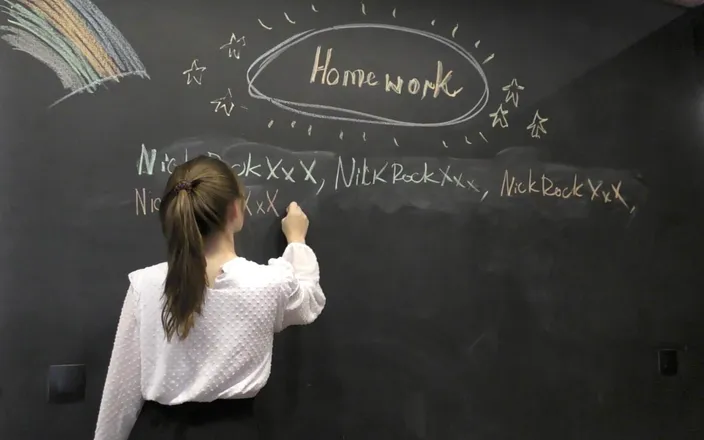 Homework
Nic ockXxX, NickRockXxx, NickRockXxX,
Nic XxX